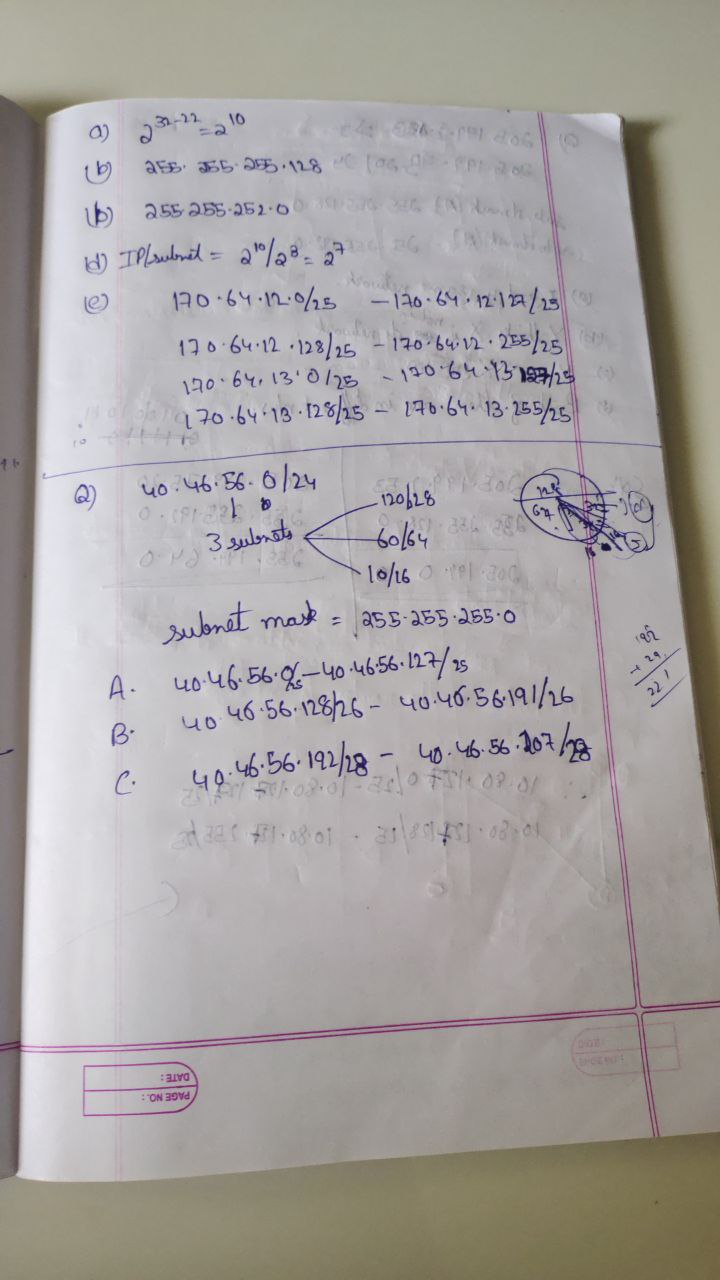 a) 2^32-22 = 2^10
(b) 255. 255.255.128
(b) 255.255.252.0
(d) IP/subnet = 2^10/2^3 = 2^7
(e) 170.64.12.0/25 - 170.64.12.127/25
170.64.12.128/25 - 170.64.12.255/25
170.64.13.0/25 - 170.64.13.127/25
170.64.13.128/25 - 170.64.13.255/25
Q) 40.46.56.0/24
120/128
3 subnets
60/64
10/16
subnet mask = 255.255.255.0
A. 40.46.56.0/25 - 40.46.56.127/25
B. 40.46.56.128/26 - 40.46.56.191/26
C. 40.46.56.192/28 - 40.46.56.207/28
128
64
192
+ 29
221
DATE :
PAGE NO. :